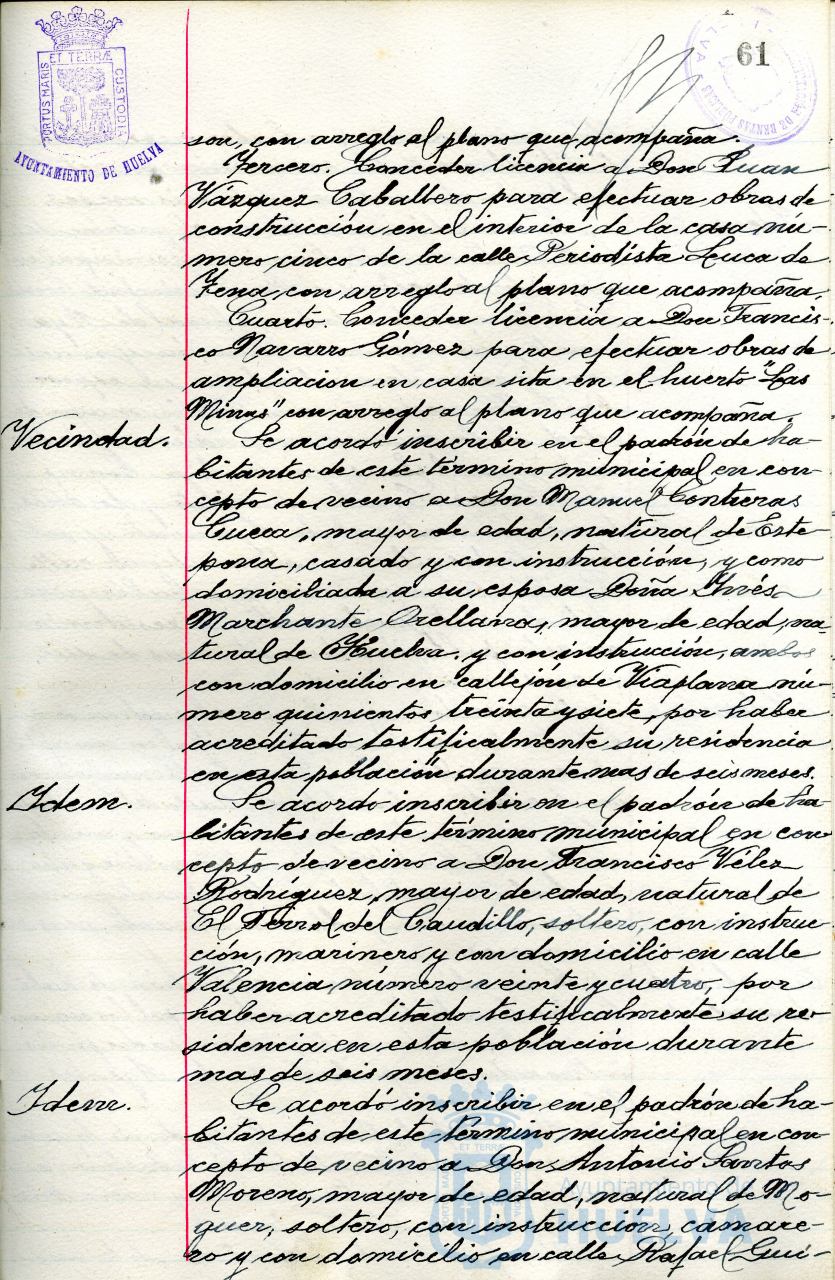 61
ET TERRÆ
PORTUS MARIS
CUSTODIA
AYUNTAMIENTO DE HUELVA
son, con arreglo al plano que acompaña.
Tercero. Conceder licencia a Don Juan
Vázquez Caballero para efectuar obras de
construcción en el interior de la casa nú-
mero cinco de la calle Periodista Luca de
Tena, con arreglo al plano que acompaña.
Cuarto. Conceder licencia a Don Francis-
co Navarro Gómez para efectuar obras de
ampliacion en casa sita en el huerto "Las
Minas" con arreglo al plano que acompaña.
Vecindad.
Se acordó inscribir en el padrón de ha-
bitantes de este término municipal en con-
cepto de vecino a Don Manuel Contreras
mayor de edad, natural de Este-
pona, casado y con instrucción, y como
domiciliada a su esposa Doña Inés
Marchante Orellana, mayor de edad, na-
tural de Huelva, y con instrucción, ambos
con domicilio en callejón de Viaplana nú-
mero quinientos treinta y siete, por haber
acreditado testificalmente su residencia
en esta población durante mas de seis meses.
Idem.
Se acordo inscribir en el padrón de ha-
bitantes de este término municipal en con-
cepto de vecino a Don Francisco Vélez
Rodríguez, mayor de edad, natural de
El Ferrol del Caudillo, soltero, con instruc-
ción, marinero y con domicilio en calle
Valencia número veinte y cuatro, por
haber acreditado testificalmente su re-
sidencia en esta población durante
mas de seis meses.
Idem.
Se acordó inscribir en el padrón de ha-
bitantes de este término municipal en con-
cepto de vecino a Don Antonio Santos
Moreno, mayor de edad, natural de Mo-
guer, soltero, con instrucción, camare-
ro y con domicilio en calle Rafael Gui-
Ayuntamiento de
HUELVA